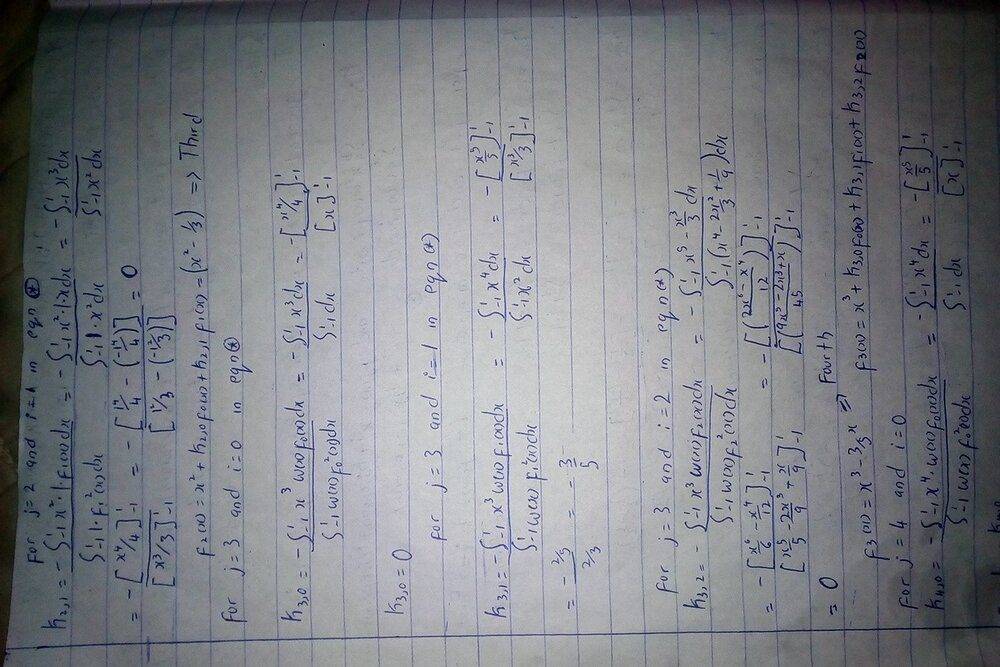 For j=2 and i=1 in eqn ⊛
K₂,₁ = -∫¹₋₁ x²·1 f₁(x)dx / ∫¹₋₁ 1·f₁²(x)dx = -∫¹₋₁ x²·1·x dx / ∫¹₋₁ 1·x²dx = -∫¹₋₁ x³dx / ∫¹₋₁ x²dx
= -[x⁴/4]¹₋₁ / [x³/3]¹₋₁ = -[1⁴/4 - (-1⁴/4)] / [1³/3 - (-1³/3)] = 0
f₂(x) = x² + K₂,₀f₀(x) + K₂,₁f₁(x) = (x² - 1/3) => Third
For j=3 and i=0 in eqn⊛
K₃,₀ = -∫¹₋₁ x³ w(x)f₀(x)dx / ∫¹₋₁ w(x)f₀²(x)dx = -∫¹₋₁ x³dx / ∫¹₋₁ dx = -[x⁴/4]¹₋₁ / [x]¹₋₁
K₃,₀ = 0
For j=3 and i=1 in eqn(*)
K₃,₁ = -∫¹₋₁ x³ w(x)f₁(x)dx / ∫¹₋₁ w(x)f₁²(x)dx = -∫¹₋₁ x⁴dx / ∫¹₋₁ x²dx = -[x⁵/5]¹₋₁ / [x³/3]¹₋₁
= -2/5 / 2/3 = -3/5
For j=3 and i=2 in eqn(*)
K₃,₂ = -∫¹₋₁ x³ w(x)f₂(x)dx / ∫¹₋₁ w(x)f₂²(x)dx = -∫¹₋₁ x⁵ - x³/3 dx / ∫¹₋₁ (x⁴ - 2x²/3 + 1/9)dx
= -[x⁶/6 - x⁴/12]¹₋₁ / [x⁵/5 - 2x³/9 + x/9]¹₋₁ = -[(2x⁶-x⁴/12)]¹₋₁ / [(9x⁵-2x³+x/45)]¹₋₁
= 0
f₃(x) = x³ - 3/5x => Fourth
f₃(x) = x³ + K₃,₀f₀(x) + K₃,₁f₁(x) + K₃,₂f₂(x)
For j=4 and i=0
K₄,₀ = -∫¹₋₁ x⁴·w(x)f₀(x)dx / ∫¹₋₁ w(x)f₀²(x)dx = -∫¹₋₁ x⁴dx / ∫¹₋₁ dx = -[x⁵/5]¹₋₁ / [x]¹₋₁